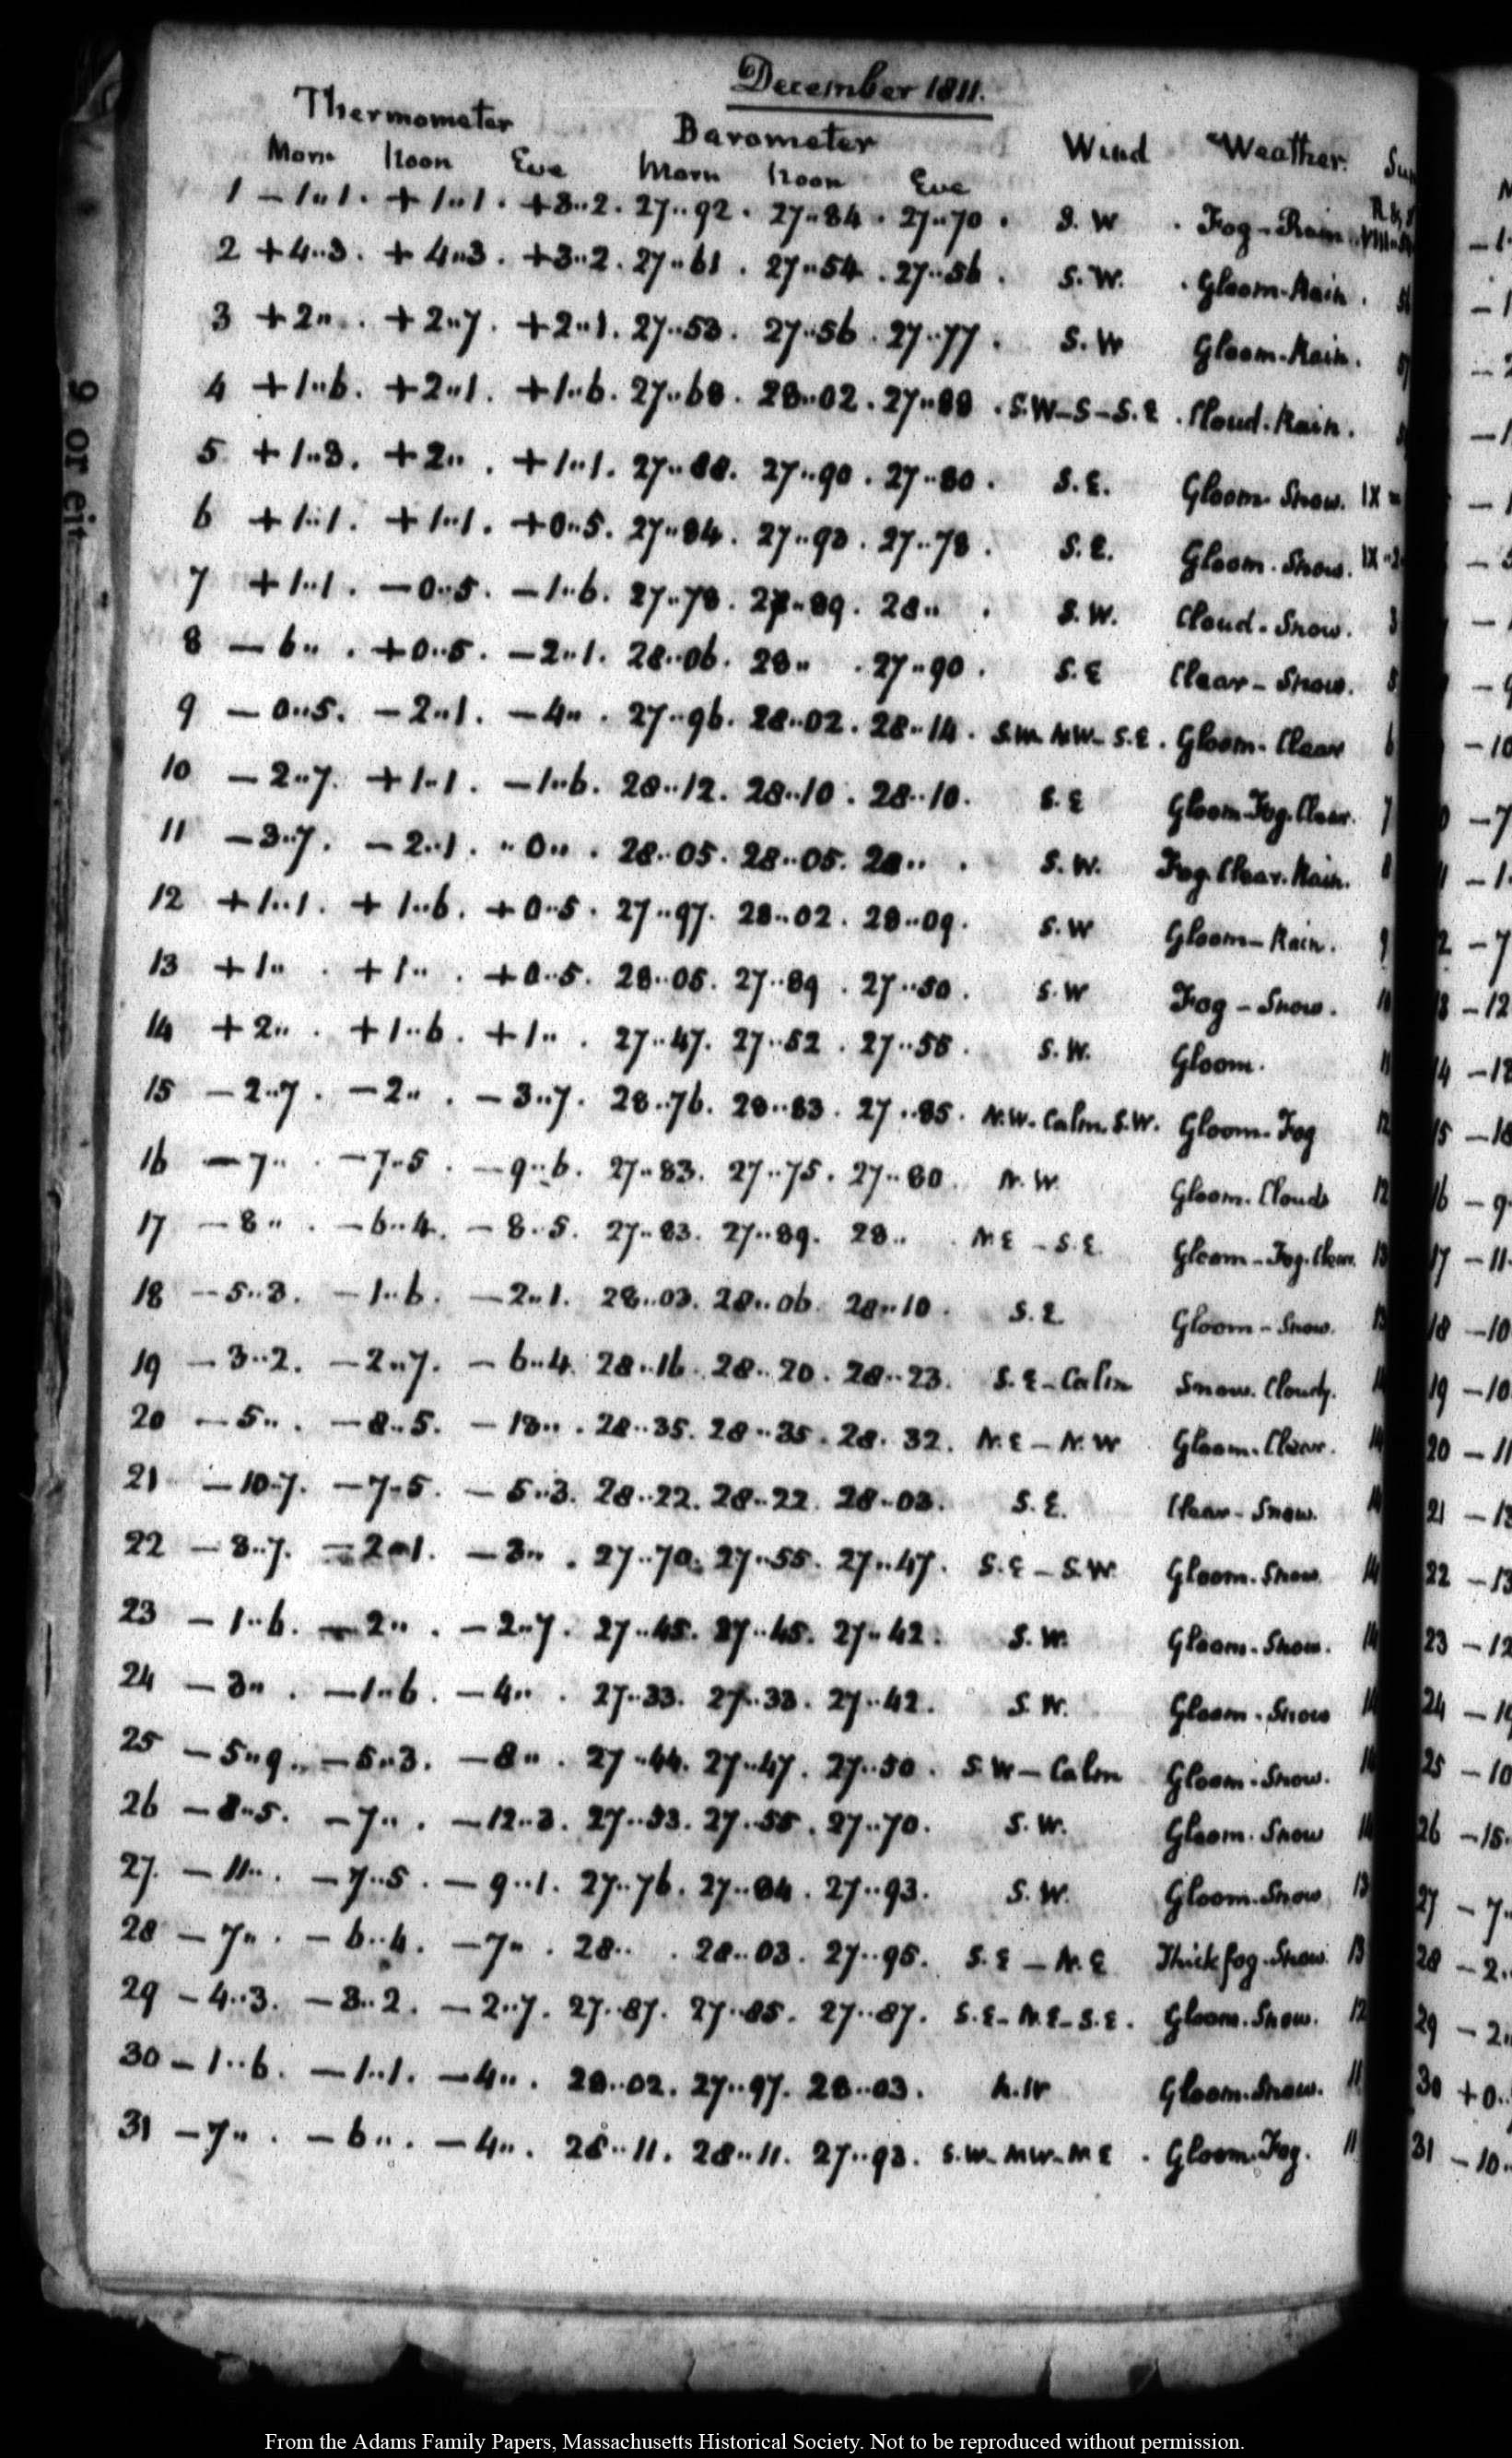 December 1811.
Thermometer Barometer Wind Weather.
Morn Noon Eve Morn Noon Eve
1 – 1"1. + 1"1. +3"2. 27"92. 27"84. 27"70. S. W. Fog – Rain
2 +4"3. + 4"3. +3"2. 27"61. 27"54. 27"56. S. W. Gloom-Rain.
3 +2". +2"7. +2"1. 27"53. 27"56. 27"77. S. W Gloom-Rain.
4 +1"6. +2"1. +1"6. 27"68. 28"02. 27"88. S.W–S–S.E. Cloud-Rain.
5 +1"3. +2". +1"1. 27"88. 27"90. 27"80. S.E. Gloom. Snow. IX
6 +1"1. +1"1. +0"5. 27"84. 27"93. 27"78. S.E. Gloom. Snow. IX"2
7 +1"1. –0"5. –1"6. 27"78. 27"89. 28". S.W. Cloud. Snow. 3
8 –6". +0"5. –2"1. 28"06. 28". 27"90. S.E Clear – Snow.
9 –0"5. –2"1. –4". 27"96. 28"02. 28"14. S.W. NW– S.E. Gloom– Clear 6
10 –2"7. +1"1. –1"6. 28"12. 28"10. 28"10. S.E Gloom-Fog. Clear. 7
11 –3"7. –2"1. "0". 28"05. 28"05. 28". S.W. Fog. Clear. Rain. 8
12 +1"1. +1"6. +0"5. 27"97. 28"02. 28"09. S.W Gloom–Rain. 9
13 +1". +1". +0"5. 28"05. 27"89. 27"50. S.W Fog – Snow. 10
14 +2". +1"6. +1". 27"47. 27"52. 27"55. S.W. Gloom. 11
15 –2"7. –2". –3"7. 28"76. 28"83. 27"85. N.W. Calm. S.W. Gloom. Fog 12
16 –7". –7"5. –9"6. 27"83. 27"75. 27"80. N.W. Gloom. Clouds 12
17 –8". –6"4. –8"5. 27"83. 27"89. 28". N.E – S.E. Gloom – Fog. Clear. 13
18 –5"3. –1"6. –2"1. 28"03. 28"06. 28"10. S.E. Gloom – Snow. 13
19 –3"2. –2"7. –6"4. 28"16. 28"20. 28"23. S.E–Calm Snow. Cloudy. 14
20 –5". –8"5. –13". 28"35. 28"35. 28.32. N.E – N.W Gloom. Clear. 14
21 –10"7. –7"5. –5"3. 28"22. 28"22. 28"03. S.E. Clear – Snow. 14
22 –3"7. –2"1. –3". 27"70. 27"55. 27"47. S.E – S.W. Gloom. Snow. 14
23 –1"6. –2". –2"7. 27"45. 27"45. 27"42. S.W. Gloom. Snow. 14
24 –3". –1"6. –4". 27"33. 27"33. 27"42. S.W. Gloom. Snow 14
25 –5"9. –5"3. –8". 27"44. 27"47. 27"50. S.W – Calm Gloom. Snow. 14
26 –8"5. –7". –12"3. 27"53. 27"55. 27"70. S.W. Gloom. Snow 14
27. –11". –7"5. –9"1. 27"76. 27"84. 27"93. S.W. Gloom. Snow 13
28 –7". –6"4. –7". 28". 28"03. 27"95. S.E – N.E Thick fog. Snow. 13
29 –4"3. –3"2. –2"7. 27"87. 27"85. 27"87. S.E– N.E– S.E. Gloom. Snow. 12
30 –1"6. –1"1. –4". 28"02. 27"97. 28"03. N.W Gloom. Snow. 11
31 –7". –6". –4". 28"11. 28"11. 27"93. S.W– NW– NE. Gloom. Fog. 11
9 or eit
From the Adams Family Papers, Massachusetts Historical Society. Not to be reproduced without permission.